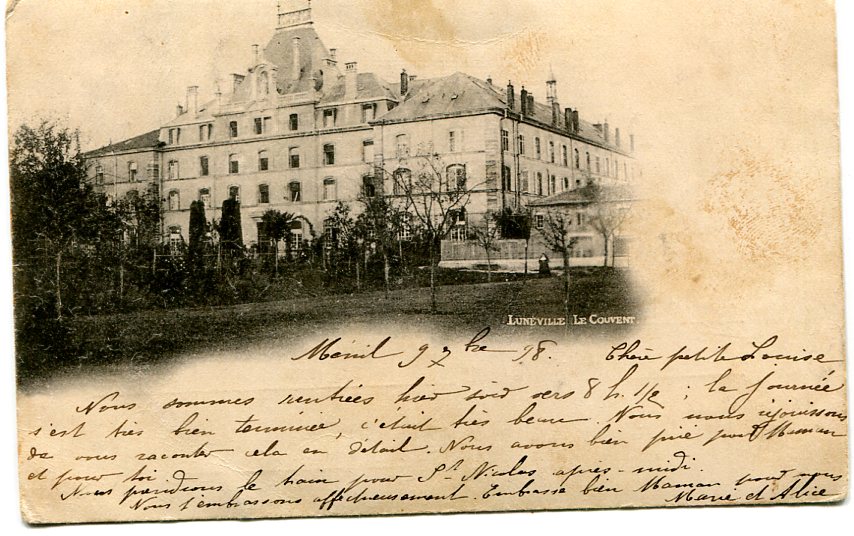 LUNÉVILLE LE COUVENT.
Ménil 9 7bre 98. Chère petite Louise
Nous sommes rentrées hier soir vers 8 h. 1/2 ; la journée
s'est très bien terminée, c'était très beau. Nous nous réjouissons
de vous raconter cela en détail. Nous avons bien prié pour Maman
et pour toi
Nous prendrons le train pour St Nicolas après-midi.
Nous t'embrassons affectueusement. Embrasse bien Maman pour nous
Marie et Alice